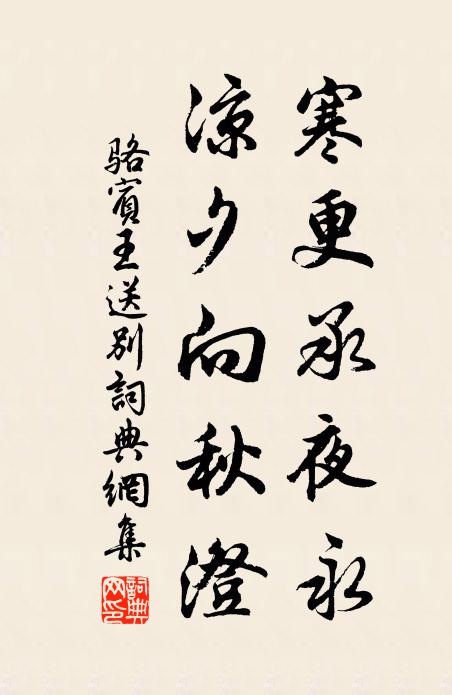 寒更承夜永
凉夕向秋澄
骆宾王送别詞典網集
詞典網印